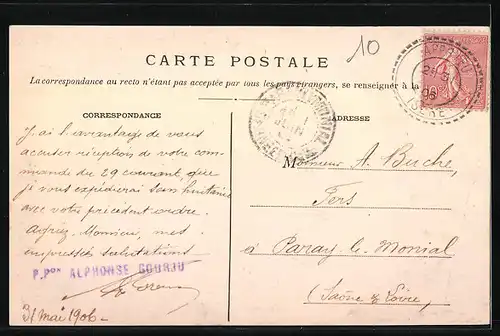 10
CARTE POSTALE
La correspondance au recto n'étant pas acceptée par tous les pays étrangers, se renseigner à la
CORRESPONDANCE
ADRESSE
J'ai l'avantage de vous
accuser réception de votre com-
mande du 29 courant, que
je vous expédierai
avec votre précédent ordre.
Agréez, Monsieur, mes
empressées salutations
P. Pon ALPHONSE GOURJU
31 Mai 1906
Monsieur A. Buche,
Fers
à Paray-le-Monial
(Saône & Loire)